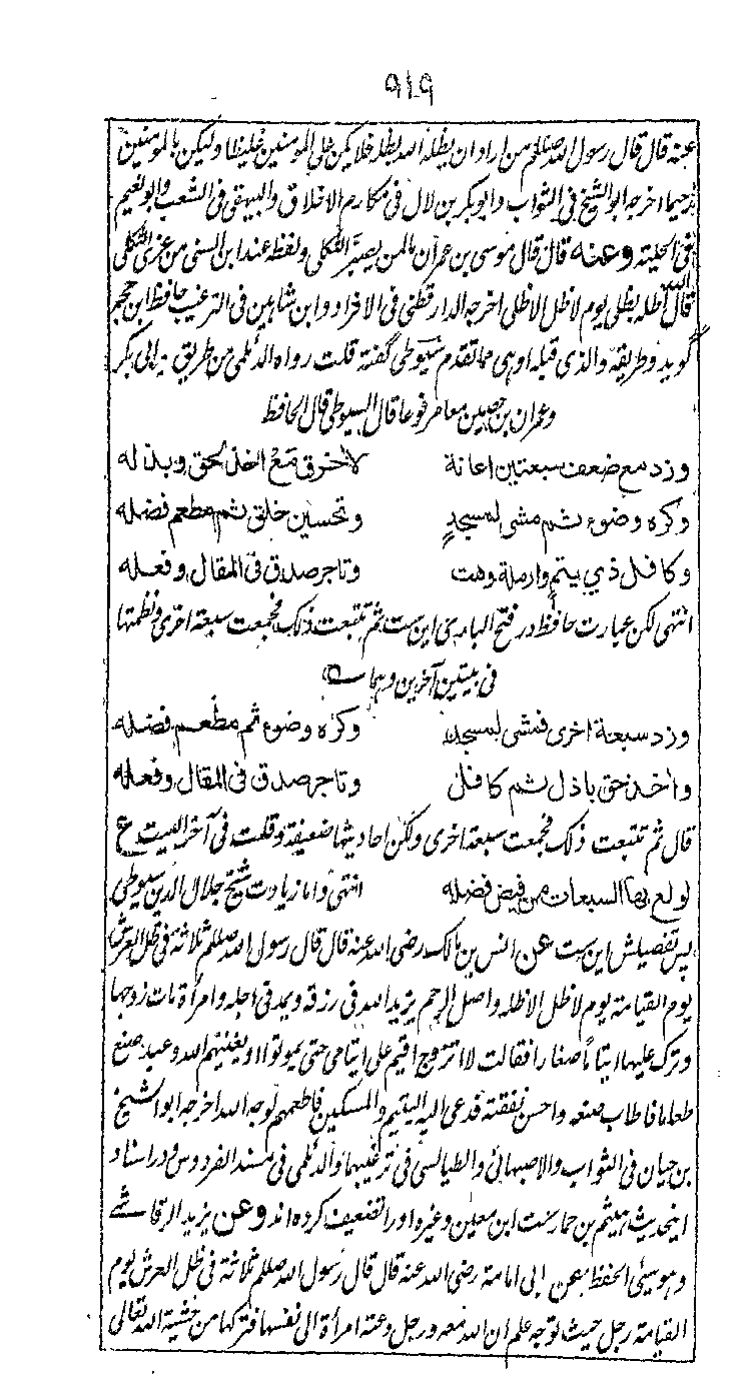 ٩١٩
عنه قال قال رسول الله صللم من اراد ان يظله الله بظله فلا يكن على المومنين غليظا وليكن بالمومنين
رحيما اخرجه ابو الشيخ فى الثواب وابو بكر بن لال فى مكارم الاخلاق والبيهقى فى الشعب وابو نعيم
فى الحلية وعنه قال قال موسى بن عمران بالمن يصبر الثكلى ولفظ عند ابن السنى من عزى الثكلى
قال الله اظله بظلى يوم لا ظل الا ظلى اخرجه الدارقطنى فى الافراد وابن شاهين فى الترغيب حافظ ابن حجر
گويد وطريقه والذى قبله اوهى مما تقدم سيوطى گفته قلت رواه الديلمى من طريق ابى بكر
وعمران بن حصين معا مرفوعا قال السيوطى قال الحافظ
وزد مع ضعف سبعتين اعانة لاخرق مع اخذ لحق وبذله
وكره وضوء ثم مشى لمسجدٍ وتحسين خلق ثم مطعم فضله
وكافل ذي يتم وارملة وهت وتاجر صدق فى المقال وفعله
انتهى لكن عبارت حافظ در فتح البارى اين ست ثم تتبعت ذلك فجمعت سبعة اخرى ونظمتها
فى بيتين آخرين وهما
وزد سبعة اخرى فمشى لمسجد وكره وضوء ثم مطعم فضله
واخذ حق باذل ثم كافل وتاجر صدق فى المقال وفعله
قال ثم تتبعت ذلك فجمعت سبعة اخرى ولكن احاديثها ضعيفة وقلت فى آخر البيت ع
لولع بها السبعات من فيض فضله انتهى واما زيادت شيخ جلال الدين سيوطى
پس تفصيلش اين ست عن انس بن مالك رضى الله عنه قال قال رسول الله صللم ثلاثة فى ظل العرش
يوم القيامة يوم لا ظل الا ظله واصل الرحم يزيد الله فى رزقه ويمد فى اجله وامرأة مات زوجها
وترك عليها ايتاما صغارا فقالت لا اتزوج اقيم على ايتامى حتى يموتوا او يغنيهم الله وعبد صنع
طعاما فاطاب صنعه واحسن نفقته فدعى اليه اليتيم والمسكين فاطعمهم لوجه الله اخرجه ابو الشيخ
بن حيان فى الثواب والاصبهانى والطيالسى فى ترغيبهما والديلمى فى مسند الفردوس ودر اسناد
اينحديث هيثم بن حماز ست ابن معين وغيره او را تضعيف كرده اند وعن يزيد الرقاشے
وهو سيئ الحفظ بعن ابى امامة رضى الله عنه قال قال رسول الله صللم ثلاثة فى ظل العرش يوم
القيامة رجل حيث توجه علم ان الله معه ورجل دعته امرأة الى نفسها فتركها من خشية الله تعالى